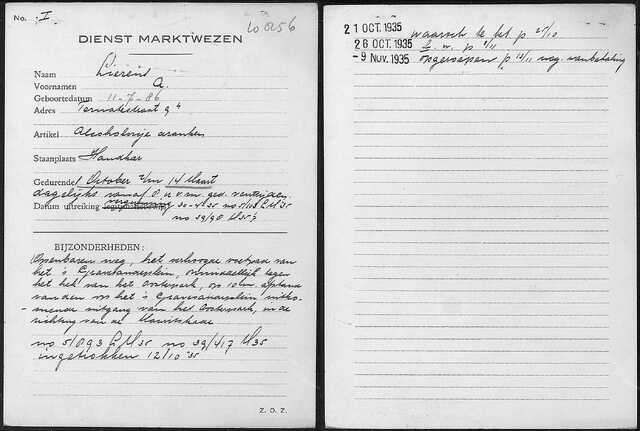 No. I
60856
DIENST MARKTWEZEN
Naam Lierens
Voornamen A.
Geboortedatum 11-7-86
Adres Ternatestraat 9 4
Artikel Alcoholvrije dranken
Staanplaats Handkar
Gedurende 1 October t/m 14 Maart
dagelijks vanaf
Datum uitreiking legitimatiebewijs 30-4-35 no 5/103 L.M.35
no 39/90 M35
BIJZONDERHEDEN:
Openbaren weg, het verhoogde voetpad van
het 's Gravesandeplein, onmiddellijk tegen
het hek van het Oosterpark, op 10 m. afstand
van den op het 's Gravesandeplein uitko-
-menden uitgang van het Oosterpark, in de
richting van de Mauritskade
no 5/093 L.M.35 no 39/417 M35
ingetrokken 12/10 '35
Z. O. Z.
21 OCT. 1935 waarsch. te bet. p 25/10
26 OCT. 1935 l. w. p 4/11
-9 Nov. 1935 opgeroepen p 14/11 weg. wanbetaling